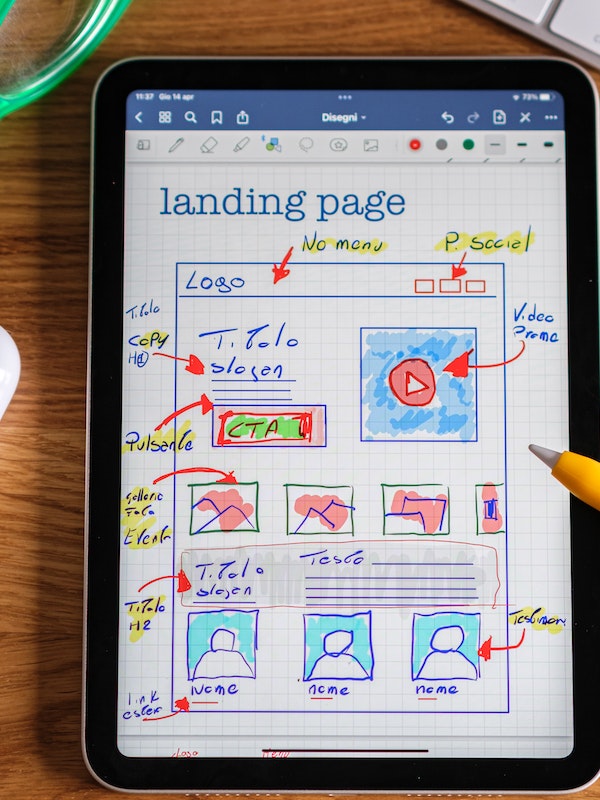 11:37 Gio 14 apr
73%
Disegni
landing page
No menu
P. Social
Logo
Titolo
Copy
H1
Titolo
slogan
Video
Promo
CTA
Pulsante
Galleria
Foto
Eventi
Titolo
slogan
Testo
Titolo
H2
Testimon
Nome
nome
nome
link
ester